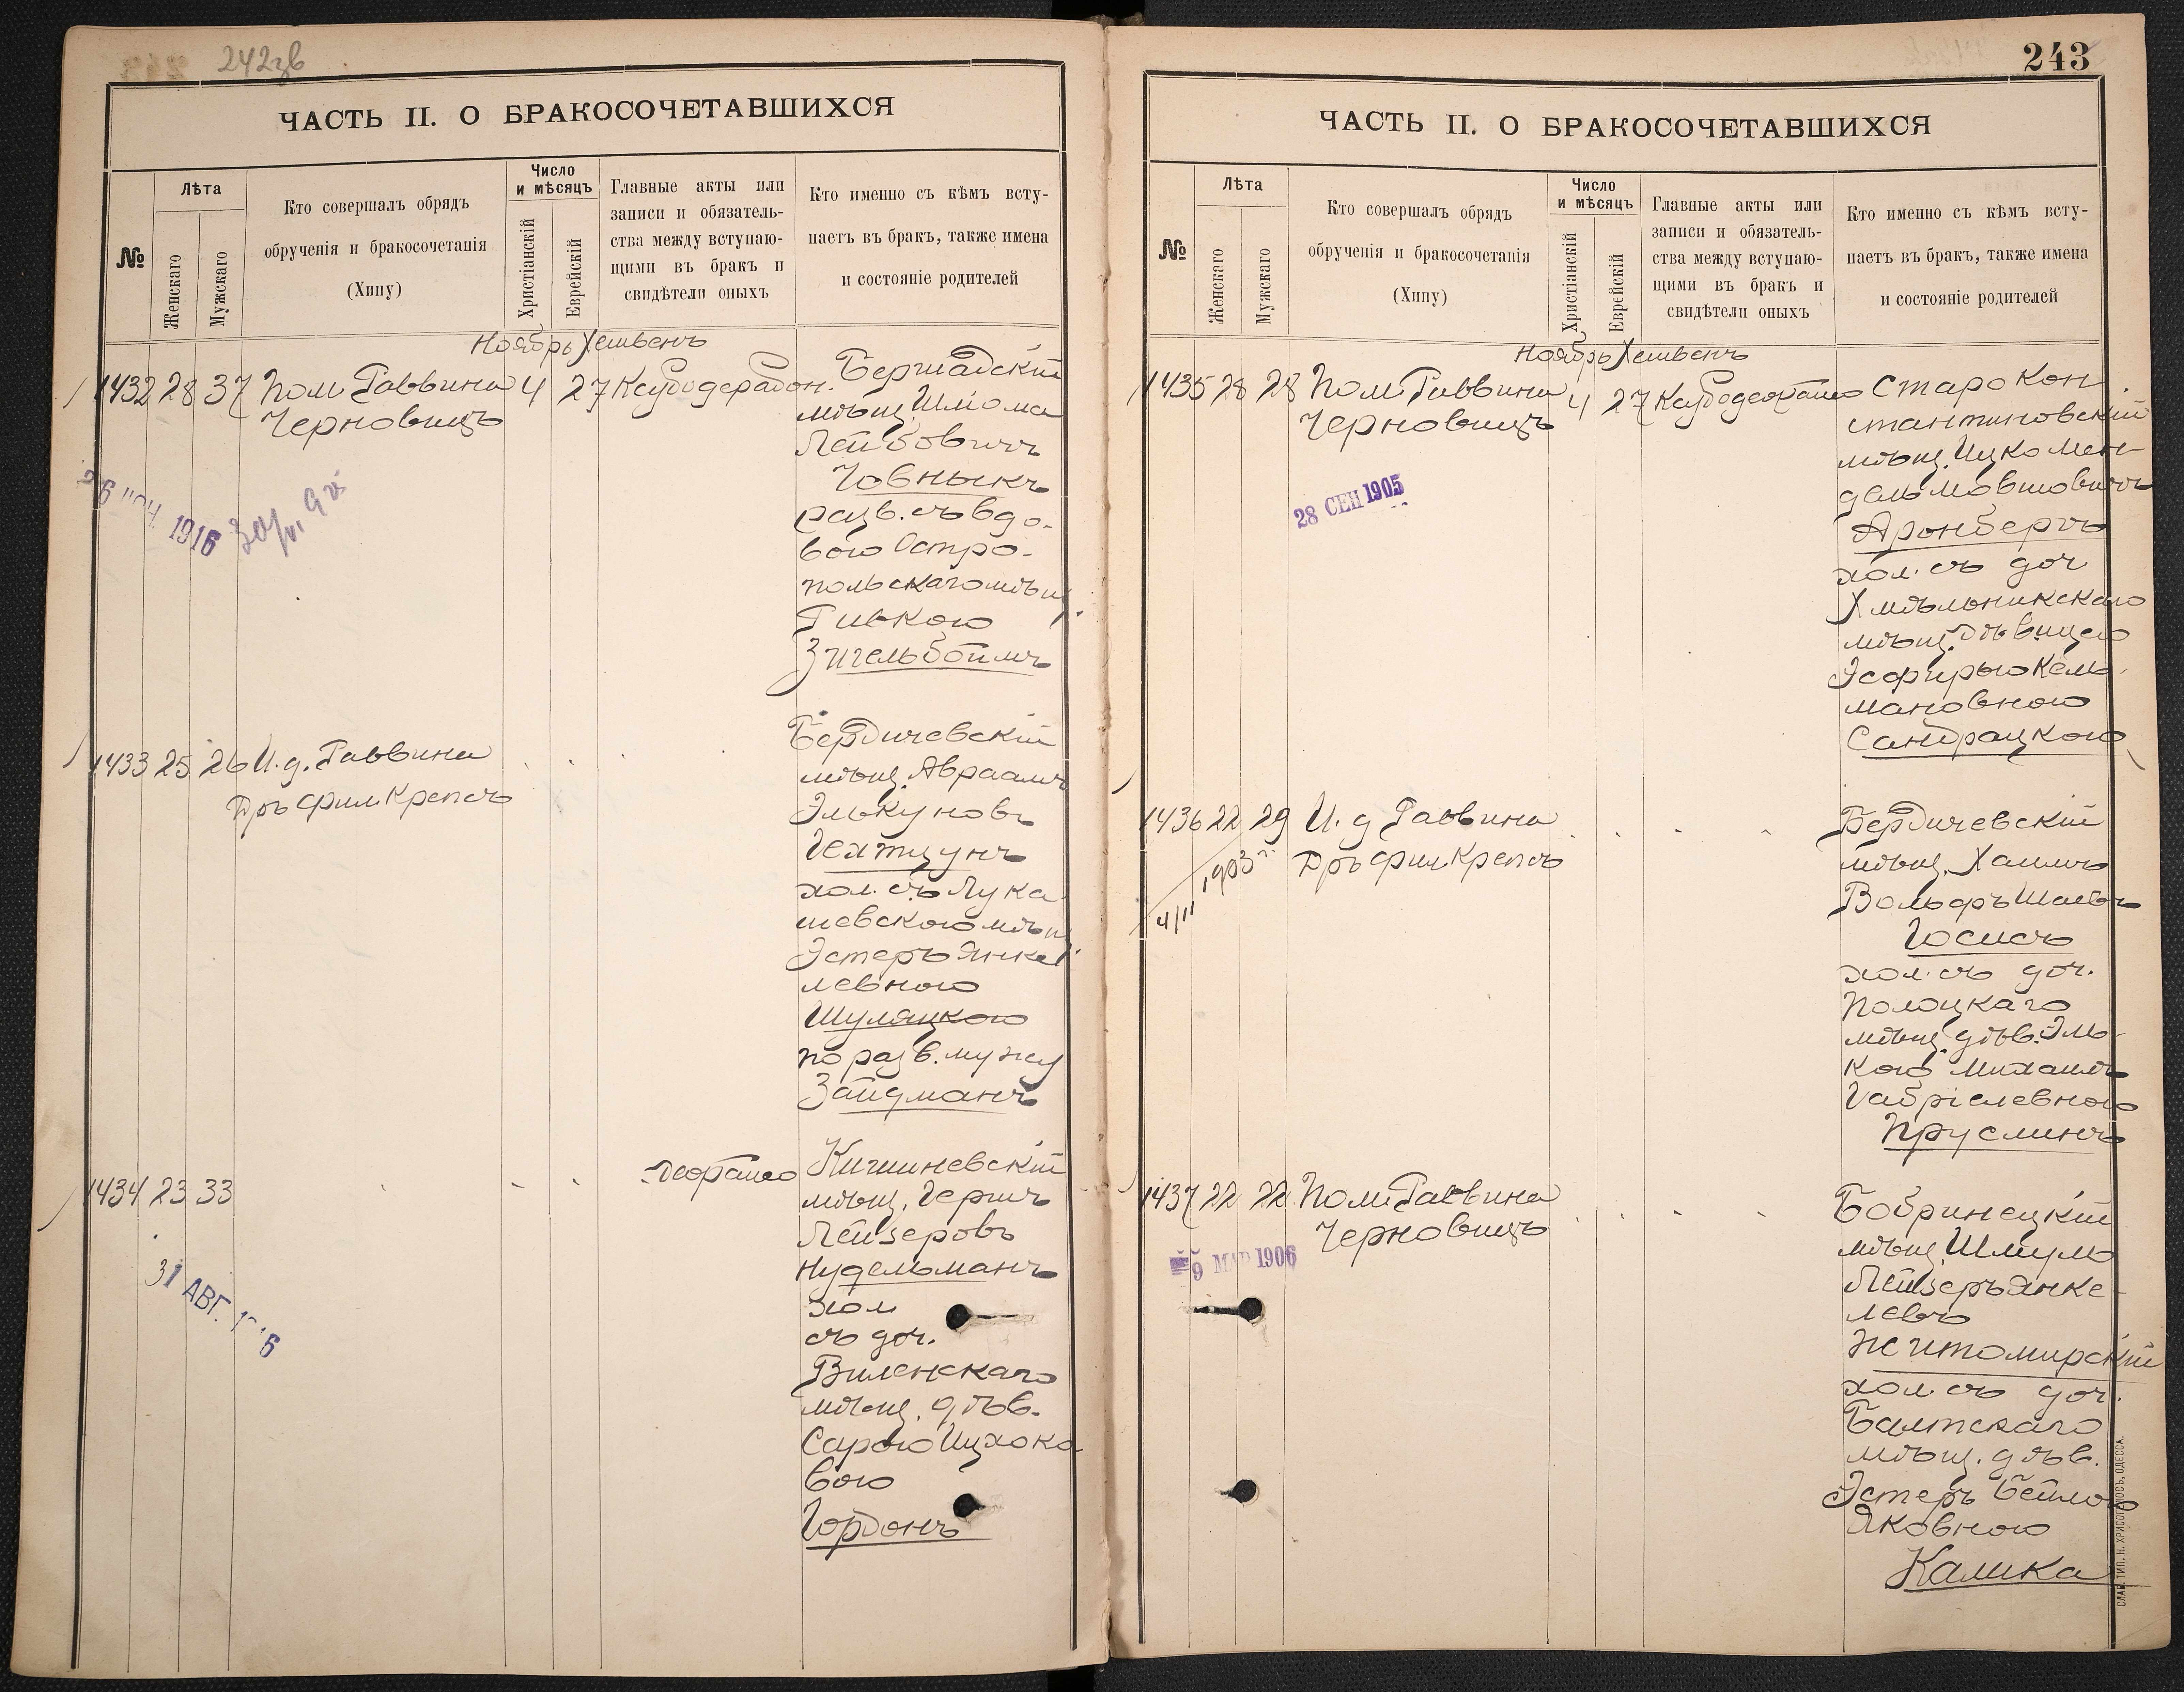 242зв
ЧАСТЬ II. О БРАКОСОЧЕТАВШИХСЯ
№
Лѣта
Женскаго
Мужскаго
Кто совершалъ обрядъ
обрученія и бракосочетанія
(Хипу)
Число
и мѣсяцъ
Христіанскій
Еврейскій
Главные акты или
записи и обязатель-
ства между вступаю-
щими въ бракъ и
свидѣтели оныхъ
Кто именно съ кѣмъ всту-
паетъ въ бракъ, также имена
и состояніе родителей
Ноябрь Хешвенъ
1432 28 37 Пом. Раввина 4 27
Черновицъ
Бершадскій
мѣщ. Шлiома
Лейбовичъ
Човныкъ
разв. съ вдо-
вою Остро-
польскаго мѣщ.
Ривкою
Зигельбоймъ
1916
1433 25 26 И. д. Раввина
Дръ фил. Крепсъ
Бердичевскій
мѣщ. Авраамъ
Элькуновъ
Гехтцунъ
хол. съ Лука-
шевскою мѣщ.
Эстеръ Янке-
левною
Шуляцкою
по разв. мужу
Зайдманъ
1434 23 33
31 АВГ.
Кишиневскій
мѣщ. Гершъ
Лейзеровъ
Нудельманъ
хол
съ доч.
Виленскаго
мѣщ. дѣв.
Сарою Ицхоко
вою
Гордонъ
243
ЧАСТЬ II. О БРАКОСОЧЕТАВШИХСЯ
№
Лѣта
Женскаго
Мужскаго
Кто совершалъ обрядъ
обрученія и бракосочетанія
(Хипу)
Число
и мѣсяцъ
Христіанскій
Еврейскій
Главные акты или
записи и обязатель-
ства между вступаю-
щими въ бракъ и
свидѣтели оныхъ
Кто именно съ кѣмъ всту-
паетъ въ бракъ, также имена
и состояніе родителей
Ноябрь Хешвенъ
1435 28 28 Пом. Раввина 4 27
Черновицъ
28 СЕН 1905
Старокон
стантиновскій
мѣщ. Ицко Мен-
дель Мовшовичъ
Аронбергъ
хол. съ доч
Хмѣльникскаго
мѣщ. дѣвицею
Эсфирью Кель-
мановною
Сандрацкою
1436 22 29 И. д Раввина
Дръ фил Крепсъ
4/II 1903 г.
Бердичевскій
мѣщ. Хаимъ
Вольфъ Шаевъ
Госисъ
хол. съ доч.
Полоцкаго
мѣщ. дѣв. Эль-
кою Михаилъ
Габріелевною
Пруслинъ
1437 22 22 Пом. Раввина
Черновицъ
9 МАР 1906
Бобринецкій
мѣщ. Шмуль
Лейзеръ Янке-
левъ
Житомирскій
хол. съ доч.
Балтскаго
мѣщ. дѣв.
Эстеръ Бейлою
Яковною
Калика
СЛАВ. ТИП. Н. ХРИСОГЕЛОСЪ, ОДЕССА.